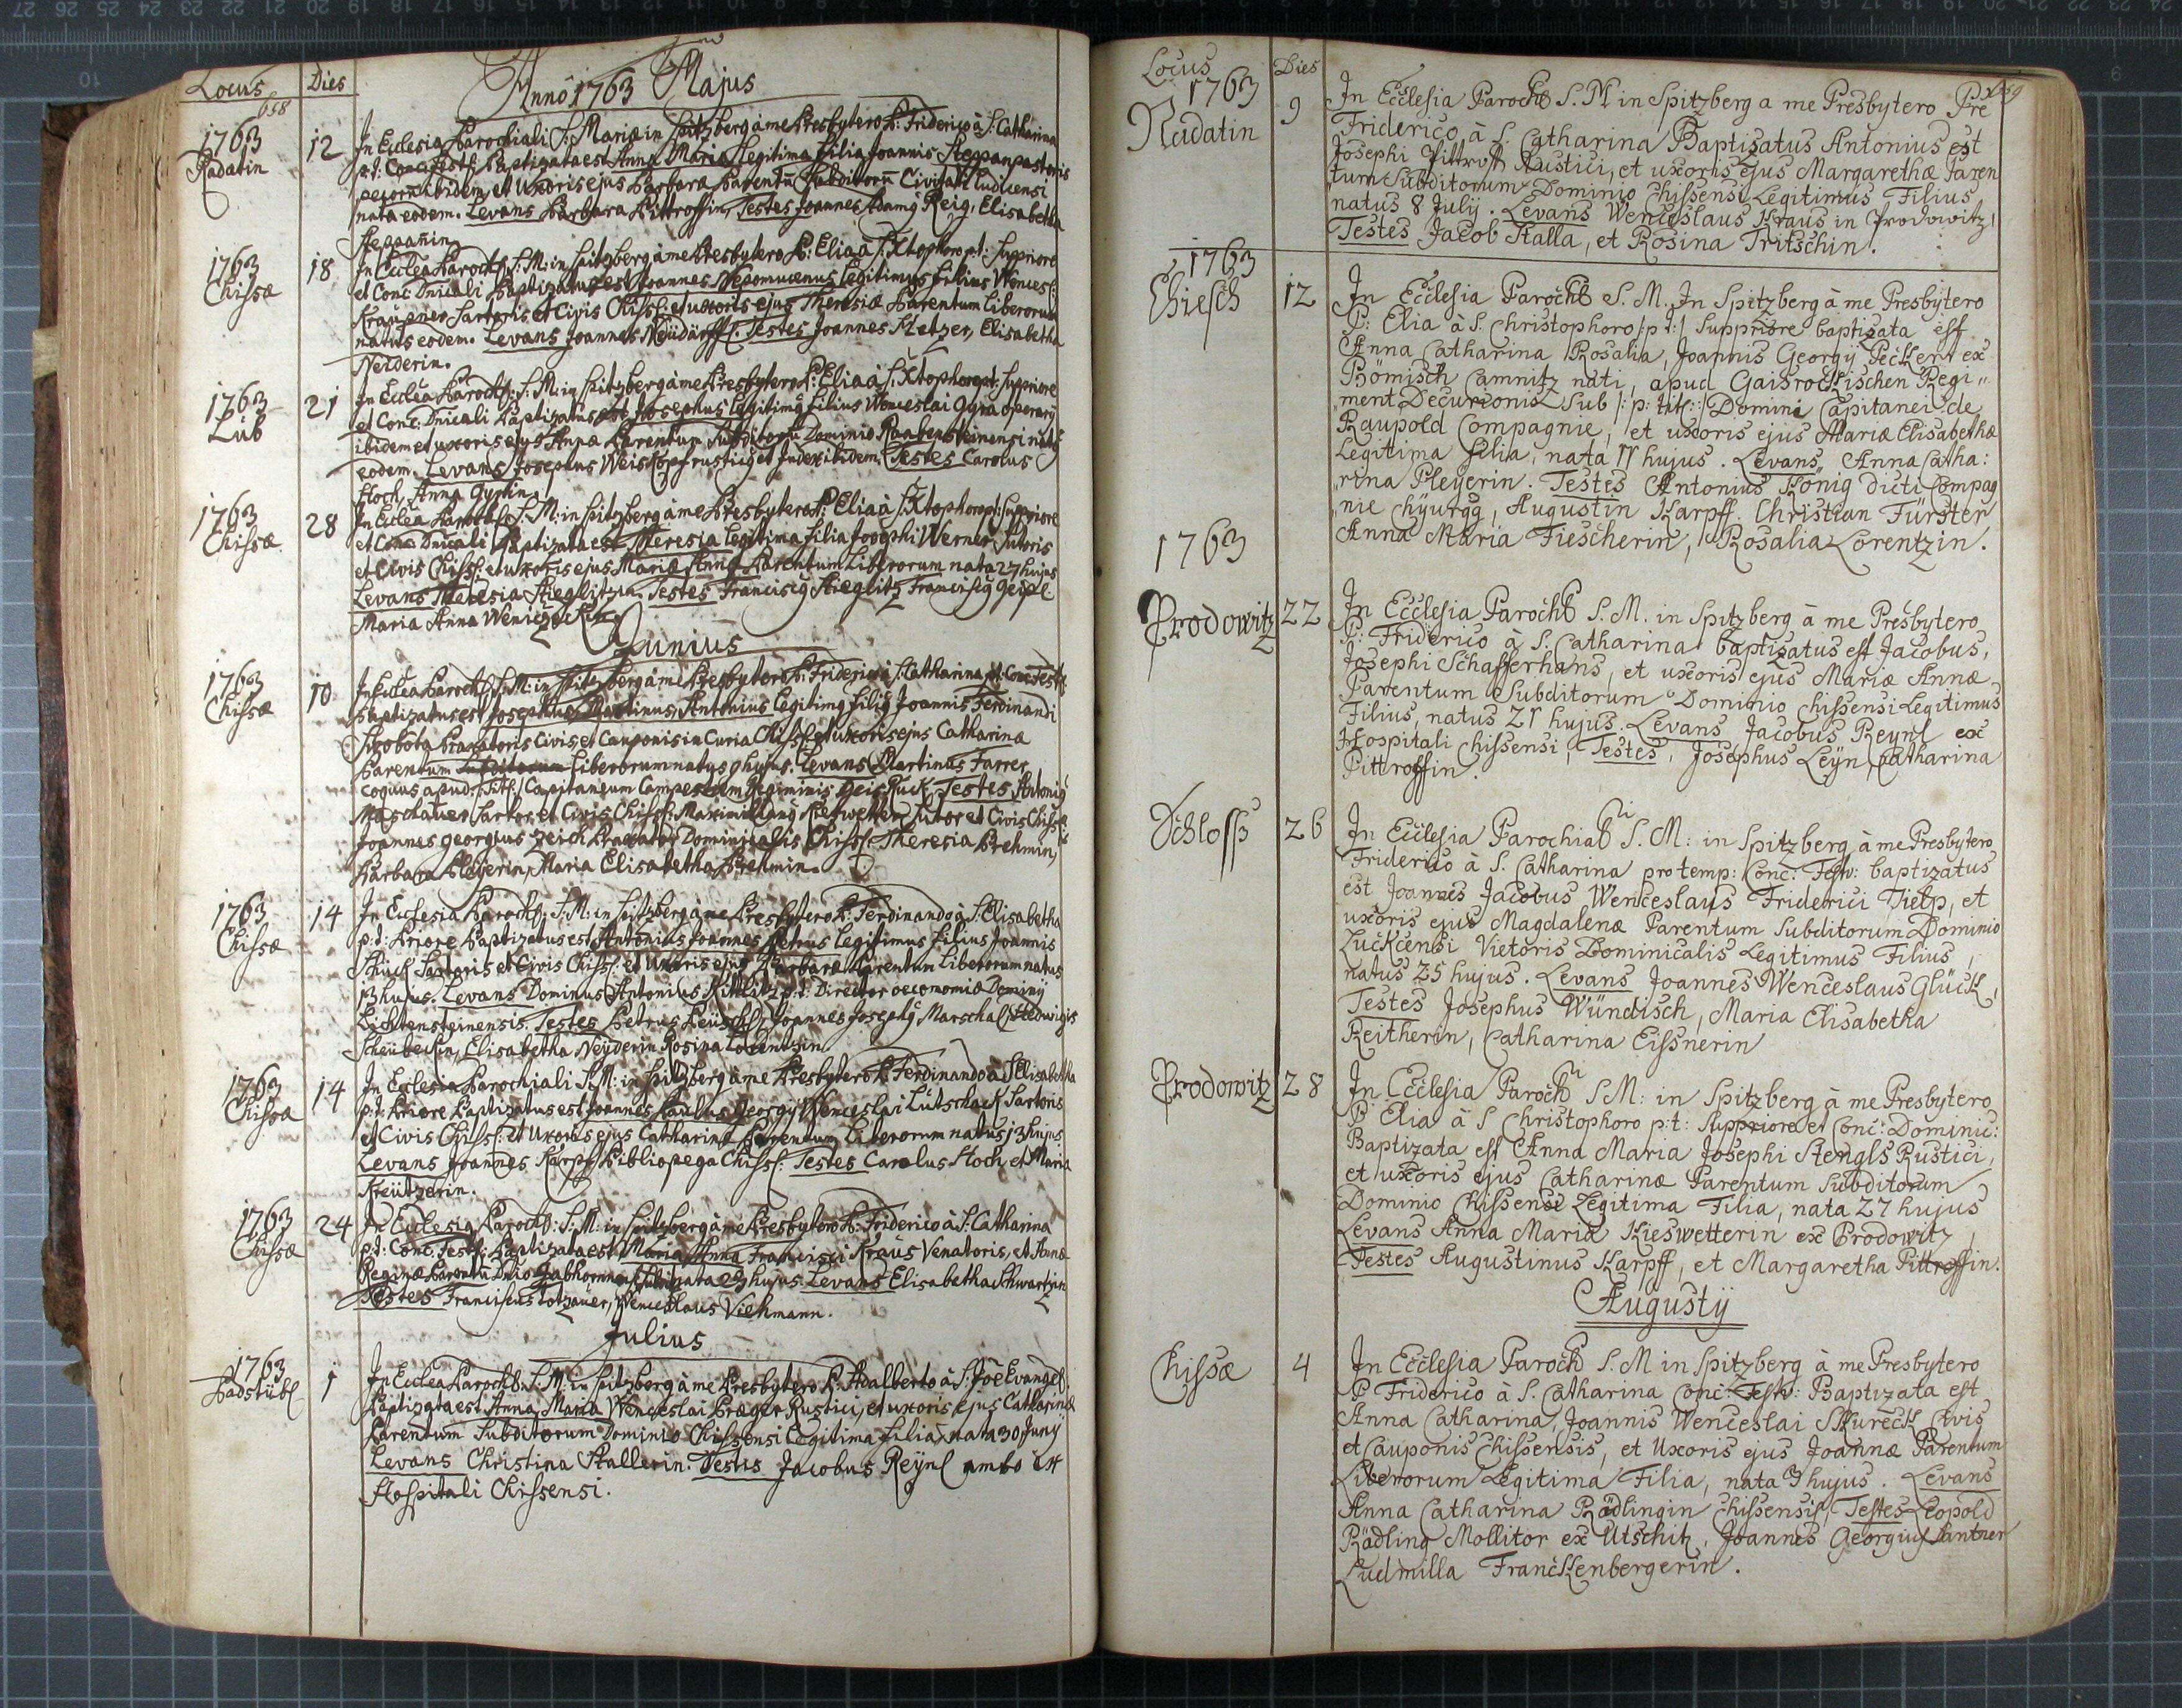 Locus
658
Dies
Anno 1763 Majus
1763
Radatin
12
In Ecclesia Parochiali S: Mariæ in Spitzberg à me Presbytero P: Friderico à S: Catharina
p:t: Conc: Fest: Baptizata est Anna Maria Legitima Filia Joannis Steppan pastoris
pecorũ ibidem, et Uxoris ejus Barbaræ Parentũ Subditorũ Civitati Ludicensi
nata eodem. Levans Barbara Pittroffin, Testes Joannes Adamg Reig, Elisabetha
Steppanin
1763
Chissæ
18
In Ecclea Paroch: S: M: in Spitzberg à me Presbytero P: Elia à S: Xtophoro p:t: Suppriore
et Conc: Dnicali Baptizatus est Joannes Nepomucenus Legitimus Filius Wences:
Kraupner Sartoris et Civis Chiss: et uxoris ejus Theresiæ Parentum Liberorum
natus eodem. Levans Joannes Neüdärffl. Testes Joannes Metzer, Elisabetha
Neiderin.
1763
Lub
21
In Ecclea Paroch: S: M: in Spitzberg à me Presbytero P: Elia à S: Xtophoro p:t: Suppriore
et Conc: Dnicali Baptizatus est Josephus Legitimg Filius Wenceslai operarij
ibidem et uxoris ejus Anna Parentum Subditorũ Dominio Rabensteinensi natg
eodem. Levans Josephus Weiskopf rusticg et Judex ibidem. Testes Carolus
Stoch, Anna
1763
Chissæ
28
In Ecclea Paroch: S: M: in Spitzberg à me Presbytero P: Elia à S: Xtophoro p:t: Suppriore
et Conc: Dnicali Baptizata est Theresia Legitima Filia Josephi Werner Sutoris
et Civis Chiss: et uxoris ejus Mariæ Annæ Parentum Liberorum nata 27 hujus
Levans Theresia Stieglitzin. Testes Franciscg Stieglitz Franciscg Geipl
Maria Anna
Junius
1763
Chissæ
10
In Ecclea Paroch: S: M: in Spitzberg à me Presbytero P: Friderico à S: Catharina p:t: Conc: Fest:
Baptizatus est Josephus, Martinus, Antonius Legitimg Filig Joannis Ferdinandi
Swoboda Braxatoris Civis et Cauponis in Curia Chiss: et uxoris ejus Catharina
Parentum Subditorum Liberorum natus 9 hujus. Levans Martinus Farres
coquus apud /:Titl:/ Capitaneum Campestrem Regiminis Geisruck. Testes Antonig
Maschauer Sartor et Civis Chiss: Maximiliang Kieswetter, Sutor et Civis Chiss:
Joannes Georgius Zeich Braxator Dominicalis Chiss: Theresia Brehmin,
Barbara Pleyerin, Maria Elisabetha Brehmin.
1763
Chissæ
14
In Ecclesia Paroch: S: M: in Spitzberg à me Presbytero P: Ferdinando à S: Elisabetha
p:t: Priore Baptizatus est Antonius Joannes Petrus Legitimus Filius Joannis
Schück Sartoris et Civis Chiss: et Uxoris ejus Barbaræ Parentum Liberorum natus
13 hujus. Levans Dominus Antonius Kittlitz p:t: Director oeconomiæ Dominij
Lichtensteinensis. Testes Petrus Reüschl, Joannes Josephg Marschal, Hedwigis
Scheübeckin, Elisabetha Neyderin Rosina Lorentzin
1763
Chissæ
14
In Ecclesia Parochiali S: M: in Spitzberg à me Presbytero P: Ferdinando à S: Elisabetha
p:t: Priore Baptizatus est Joannes Paulus Georgij Wenceslai Lutschack Sartoris
et Civis Chiss: et Uxoris ejus Catharinæ Parentum Liberorum natus 13 hujus.
Levans Joannes Karpf Bibliopega Chiss: Testes Carolus Stoch, et Maria
Kreützerin.
1763
Chissæ
24
In Ecclesia Paroch: S: M: in Spitzberg à me Presbytero P: Friderico à S: Catharina
p:t: Conc: Fest: Baptizata est Maria Anna Francisci Kraus Venatoris, et Annæ
Reginæ Parentũ Dnio nata 23 hujus. Levans Elisabetha Schwartzin
Testes Franciscus Lotzauer, Wenceslaus Viehmann.
Julius
1763
Badstübl
1
In Ecclea Paroch: S: M: in Spitzberg à me Presbytero P: Adalberto à S: Joe Evangel:
Baptizata est Anna Maria Wenceslai Præger Rustici, et uxoris ejus Catharinæ
Parentum Subditorum Dominio Chissensi Legitima Filia, nata 30 Junij
Levans Christina Stallerin. Testis Jacobus Reynl ambo ex
Hospitali Chissensi.
Locus
1763
Dies
659
Nadatin
9
In Ecclesia Paroch S. M in Spitzberg a me Presbytero Pre
Friderico à S. Catharina Baptisatus Antonius est
Josephi Pittroff Rustici, et uxoris ejus Margarethæ Paren
tum Subditorum Dominio Chissensi Legitimus Filius
natus 8 July. Levans Wenceslaus Kraus in Prodowitz,
Testes Jacob Stalla, et Rosina Tritschin.
1763
Chiesch
12
In Ecclesia Paroch S. M. In Spitzberg à me Presbytero
P: Elia à S. Christophoro /:p t:/ Suppriore baptizata est
Anna Catharina Rosalia, Joannis Georgij Peckert ex
Bömisch Camnitz nati, apud Gaisrockischen Regi„
ment Decurionis Sub /:p: titl:/ Domini Capitanei de
Raupold Compagnie, et uxoris ejus Mariæ Elisabethæ
Legitima filia, nata 11 hujus. Levans Anna Catha:
„rina Pleyerin. Testes Antonius König dicti Compag
„nie Chyurgg, Augustin Karpff. Christian Fürster
Anna Maria Fiescherin, Rosalia Lorentzin.
1763
Prodowitz
22
In Ecclesia Paroch S. M. in Spitzberg à me Presbytero
P: Friderico à S. Catharina baptisatus est Jacobus,
Josephi Schafferhans, et uxoris ejus Mariæ Annæ
Parentum Subditorum Dominio Chissensi Legitimus
Filius, natus 21 hujus. Levans Jacobus Reynl ex
Hospitali Chissensi, Testes, Josephus Leyn, Catharina
Pittroffin.
Schloss
26
In Ecclesia Parochiali S. M: in Spitzberg à me Presbytero
Friderico à S. Catharina pro temp: Conc: Festiv: baptizatus
est Joannes Jacobus Wenceslaus Friderici Tielp, et
uxoris ejus Magdalenæ Parentum Subditorum Dominio
Luckcensi Vietoris Dominicalis Legitimus Filius,
natus 25 hujus. Levans Joannes Wenceslaus Glück,
Testes Josephus Wündisch, Maria Elisabetha
Reitherin, Catharina Eissnerin
Prodowitz
28
In Ecclesia Paroch S M: in Spitzberg à me Presbytero
P Elia à S Christophoro p:t: Suppriore et Conc: Dominic:
Baptizata est Anna Maria Josephi Stengls Rustici,
et uxoris ejus Catharinæ Parentum Subditorum
Dominio Chissensi Legitima Filia, nata 27 hujus
Levans Anna Maria Kieswetterin ex Prodowitz,
Testes Augustinus Karpff, et Margaretha Pittroffin.
Augustij
Chissæ
4
In Ecclesia Paroch S. M in Spitzberg à me Presbytero
P Friderico à S. Catharina Conc: Festiv: Baptizata est
Anna Catharina, Joannis Wenceslai Skureck Civis
et Cauponis Chissensis, et Uxoris ejus Joannæ Parentum
Liberorum Legitima Filia, nata 3 hujus. Levans
Anna Catharina Rädlingin Chissensis, Testes Leopold
Rädling Mollitor ex Utschih, Joannes Georgius Santner
Ludmilla Franckenbergerin.